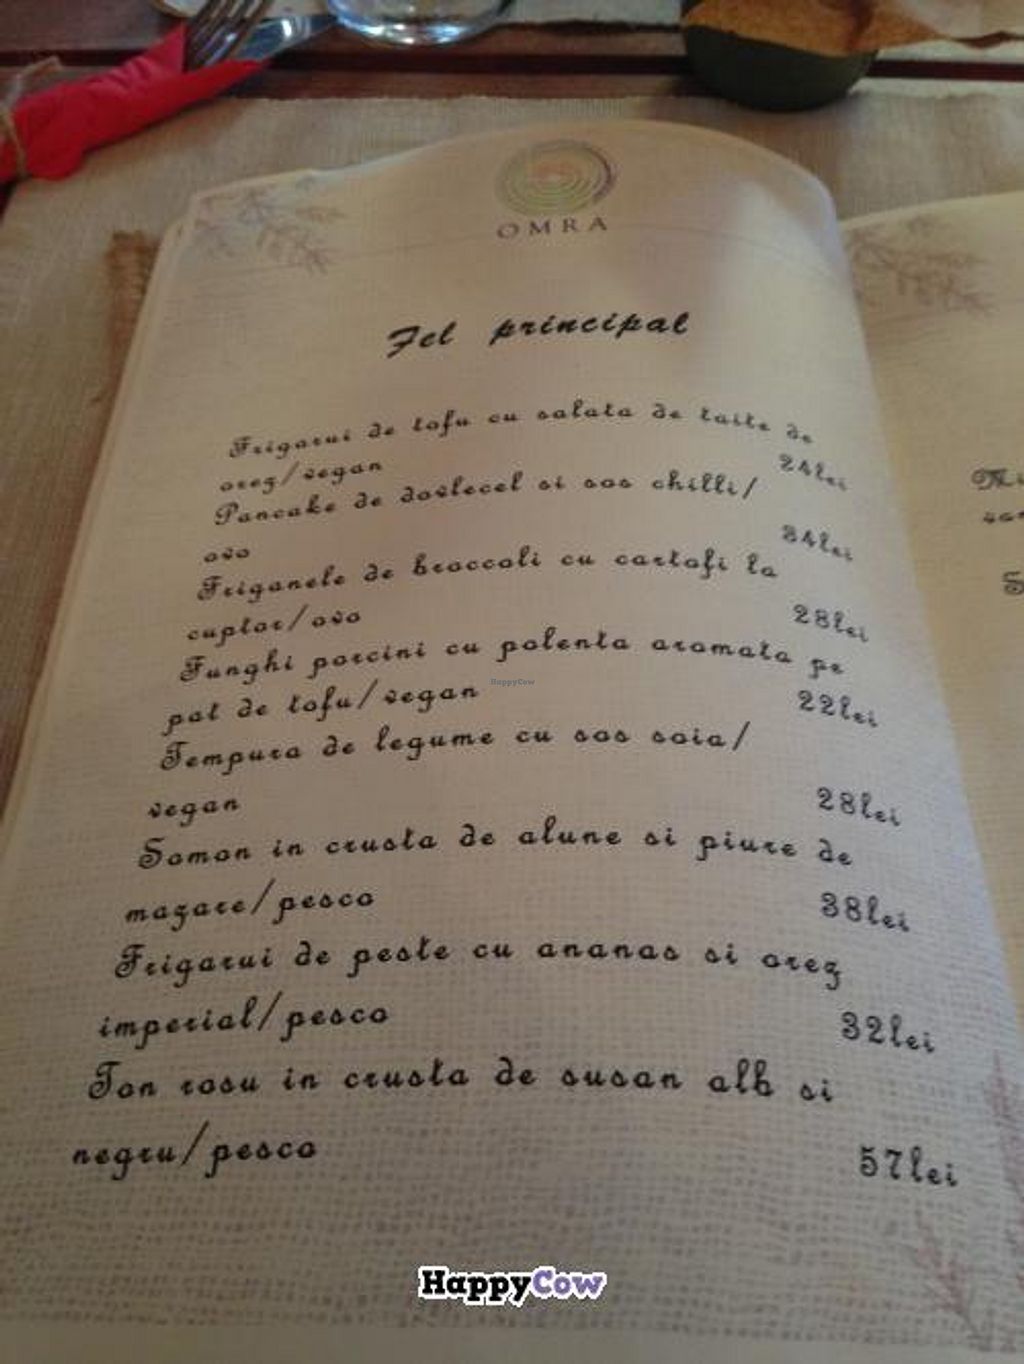 OMRA
Fel principal
Frigarui de tofu cu salata de taite de
orez/vegan 24lei
Pancake de dovlecel si sos chilli/
ovo 34lei
Friganele de broccoli cu cartofi la
cuptor/ovo 28lei
Funghi porcini cu polenta aromata pe
pat de tofu/vegan 22lei
Tempura de legume cu sos soia/
vegan 28lei
Somon in crusta de alune si piure de
mazare/pesco 38lei
Frigarui de peste cu ananas si orez
imperial/pesco 32lei
Ton rosu in crusta de susan alb si
negru/pesco 57lei
HappyCow
HappyCow